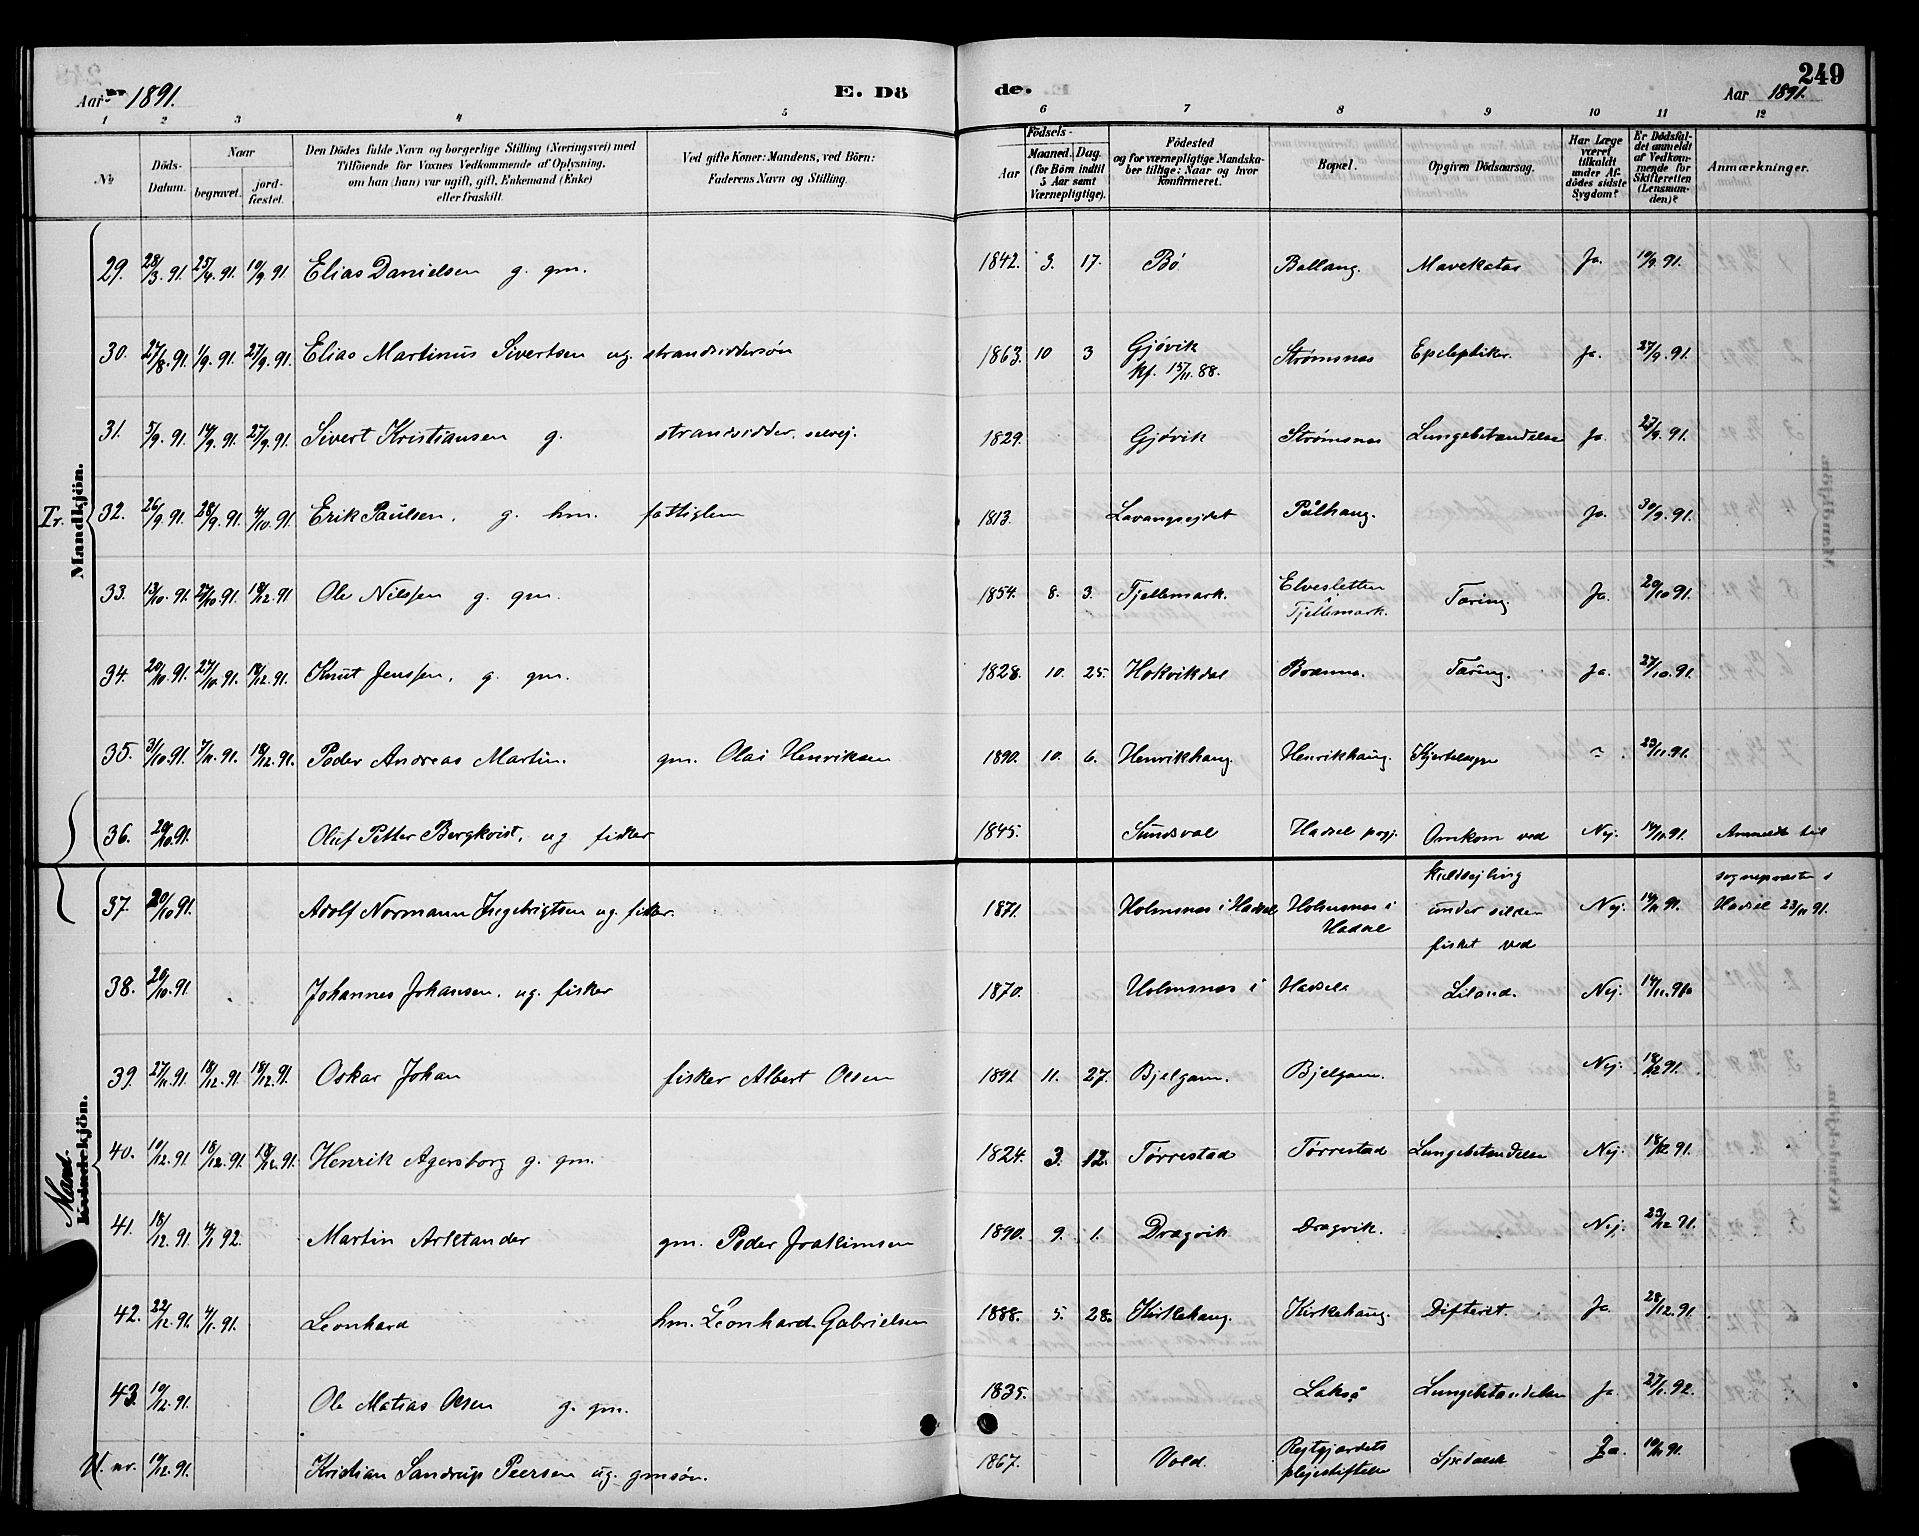 Aar 1891.
E. Dö
de.
249
Aar 1891.
1 2 3 4 5 6 7 8 9 10 11 12
No
Döds-Datum.
Naar
begravet.
jord-fæstet.
Den Dödes fulde Navn og borgerlige Stilling (Næringsvei) med
Tilföiende for Voxnes Vedkommende af Oplysning,
om han (hun) var ugift, gift, Enkemand (Enke)
eller fraskilt.
Ved gifte Koner: Mandens, ved Börn:
Faderens Navn og Stilling.
Födsels-
Aar
Maaned. Dag.
(for Börn indtil
5 Aar samt
Værnepligtige).
Födested
og for værnepligtige Mandska-
ber tillige: Naar og hvor
Konfirmeret.
Bopæl.
Opgiven Dödsaarsag.
Har Læge
været
tilkaldt
under Af-
dödes sidste
Sygdom?
Er Dödsfal-
det anmeldt
af Vedkom-
mende for
Skifteretten
(Lensman-
den)?
Anmærkninger.
Mandkjön.
Tr.
29. 28/3 91. 25/4 91. 19/9 91 Elias Danielsen g. gm. 1842. 3. 17. Bö Ballang. Mavekatar Ja. 19/9 91.
30. 27/8 91. 1/9 91. 27/9 91. Elias Martinus Sivertsen ug. strandsiddersøn 1863. 10 3 Gjøvik Strømsnas Epeleptiker. Ja. 27/9 91.
kf. 13/11 88.
31. 5/9 91. 14/9 91. 27/9 91. Sivert Kristiansen g. strandsidder, selvej. 1829. Gjøvik Strømsnas Lungebetændelse Ja. 27/9 91.
32. 26/9 91. 28/9 91. 4/10 91. Erik Paulsen. g. hm. fattiglem 1813. Lavangsejdet Pålhaug. Ja. 30/9 91.
33. 13/10 91. 27/10 91. 18/12 91 Ole Nilssen g. gm. 1854. 8. 3. Tjellemark. Elvesletten Tæring. Ja. 20/10 91.
i Tjellemark.
34. 20/10 91. 27/10 91. 18/12 91. Knut Jenssen, g. gm. 1828. 10. 25. Hokvikdal Bramna. Tæring. Ja. 27/10 91.
35. 31/10 91. 7/11 91. 18/12 91. Peder Andreas Martin. gm. Olai Henriksen 1890. 10. 6. Henrikhaug. Henrikhaug. 23/11 91.
36. 20/10 91. Oluf Petter Bergkvist, ug fisker 1845. Sundsval Hadsel prgj. Omkom ved Nej. 14/11 91. Anmeldt til
37. 20/10 91. Adolf Normann Ingebrigtsen ug. fisker. 1871. Holmsnas i Hadsel Holmsnas i kuldsejling Nej. 14/11 91. sognepræsten i
Hadsel under silde Hadsel 23/11 91.
fisket ved
38. 20/10 91. Johannes Johansen, ug. fisker 1870. Holmsnas i Hadsel Liland. Nej. 14/11 91.
39. 27/11 91. 18/12 91 18/12 91. Oskar Johan fisker Albert Olsen 1891 11. 27. Bjelgam. Bjelgam. Nej. 18/12 91.
Mand-
Kvindekjön.
40. 10/12 91 18/12 91 18/12 91. Henrik Agersborg g. gm. 1824. 3. 12. Tørrestad Tørrestad Lungebetændelse Nej. 18/12 91.
41. 18/12 91. 4/1 92. Martin Arktander gm. Peder Joakimsen 1890. 9. 1. Dragvik Dragvik. Nej. 23/12 91.
42. 22/12 91. 4/1 91. Leonhard hm. Leonhard Gabrielsen 1888. 5. 28. Kirkehaug. Kirkehaug. Difterit. Ja. 28/12 91.
43. 19/12 91. Ole Matias Olsen g. gm. 1835. Lakså Lungebetændelse Ja 27/1 92.
U. nr. 19/12 91. Kristian Sandrup Peersen ug. gmsøn. 1867. Vold. Rejtgjærdets Spedalsk Ja. 19/12 91.
plejestiftelse